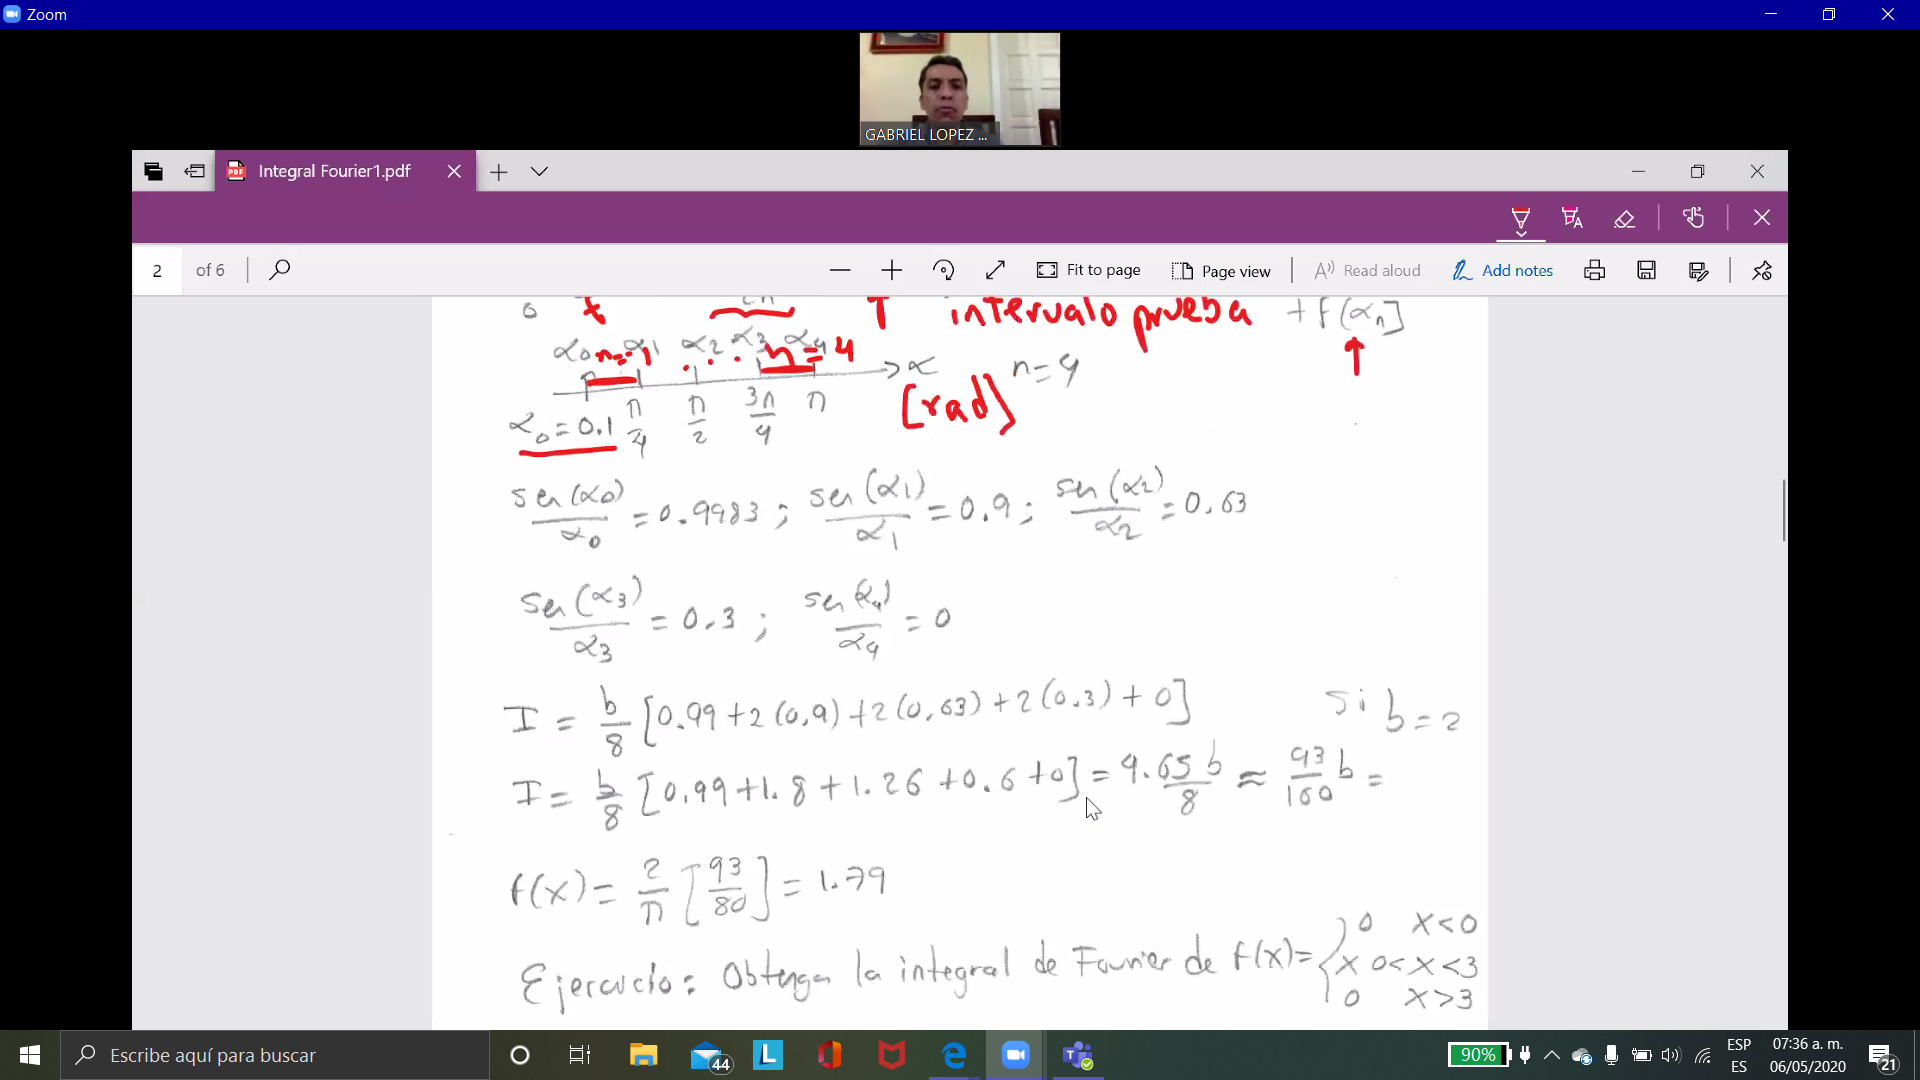 Zoom
GABRIEL LOPEZ ...
Integral Fourier1.pdf
2 of 6 Fit to page Page view Read aloud Add notes
0 t T intervalo prueba + f(αn]
α0 n=1 α1 α2 . . α3 n=4 α4 → α n=4
π/4 π/2 3π/4 π [rad]
α0=0.1
sen(α0)/α0 = 0.9983 ; sen(α1)/α1 = 0.9 ; sen(α2)/α2 = 0.63
sen(α3)/α3 = 0.3 ; sen(α4)/α4 = 0
I = b/8 [0.99+2(0,9)+2(0,63)+2(0.3)+0] Si b=2
I = b/8 [0.99+1.8+1.26+0.6+0] = 4.65b/8 ≈ 93/160 b =
f(x) = 2/π [93/80] = 1.79
Ejercicio: Obtenga la integral de Fourier de f(x)= { 0 x<0
x 0<x<3
0 x>3
Escribe aquí para buscar 44 90% ESP ES 07:36 a. m. 06/05/2020 21